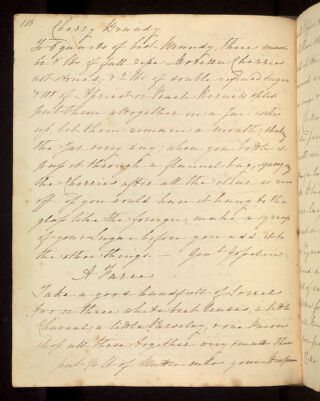 118
Cherry Brandy
To 6 quarts of best Brandy, there must
be 8 lbs of full ripe Morella Cherries
not stoned, & 2 lbs of double refined sugar
& 100 of Apricot or Peach Kernels split
put them altogether in a jar
up, let them remain a month, shake
the Jar every day; when you bottle it
pass it through a flannel bag,
the Cherries after all the is run
off if you would have it hang to the
glass like the foreign, make a syrup
of your Sugar before you add it to
the other things. — Genl Gosselin
A Farce
Take a good handfull of Sorrel
two or three white beet leaves, a little
Charvel, a little Parsley, & one Onion
chop all these together very small then
put of Butter into your